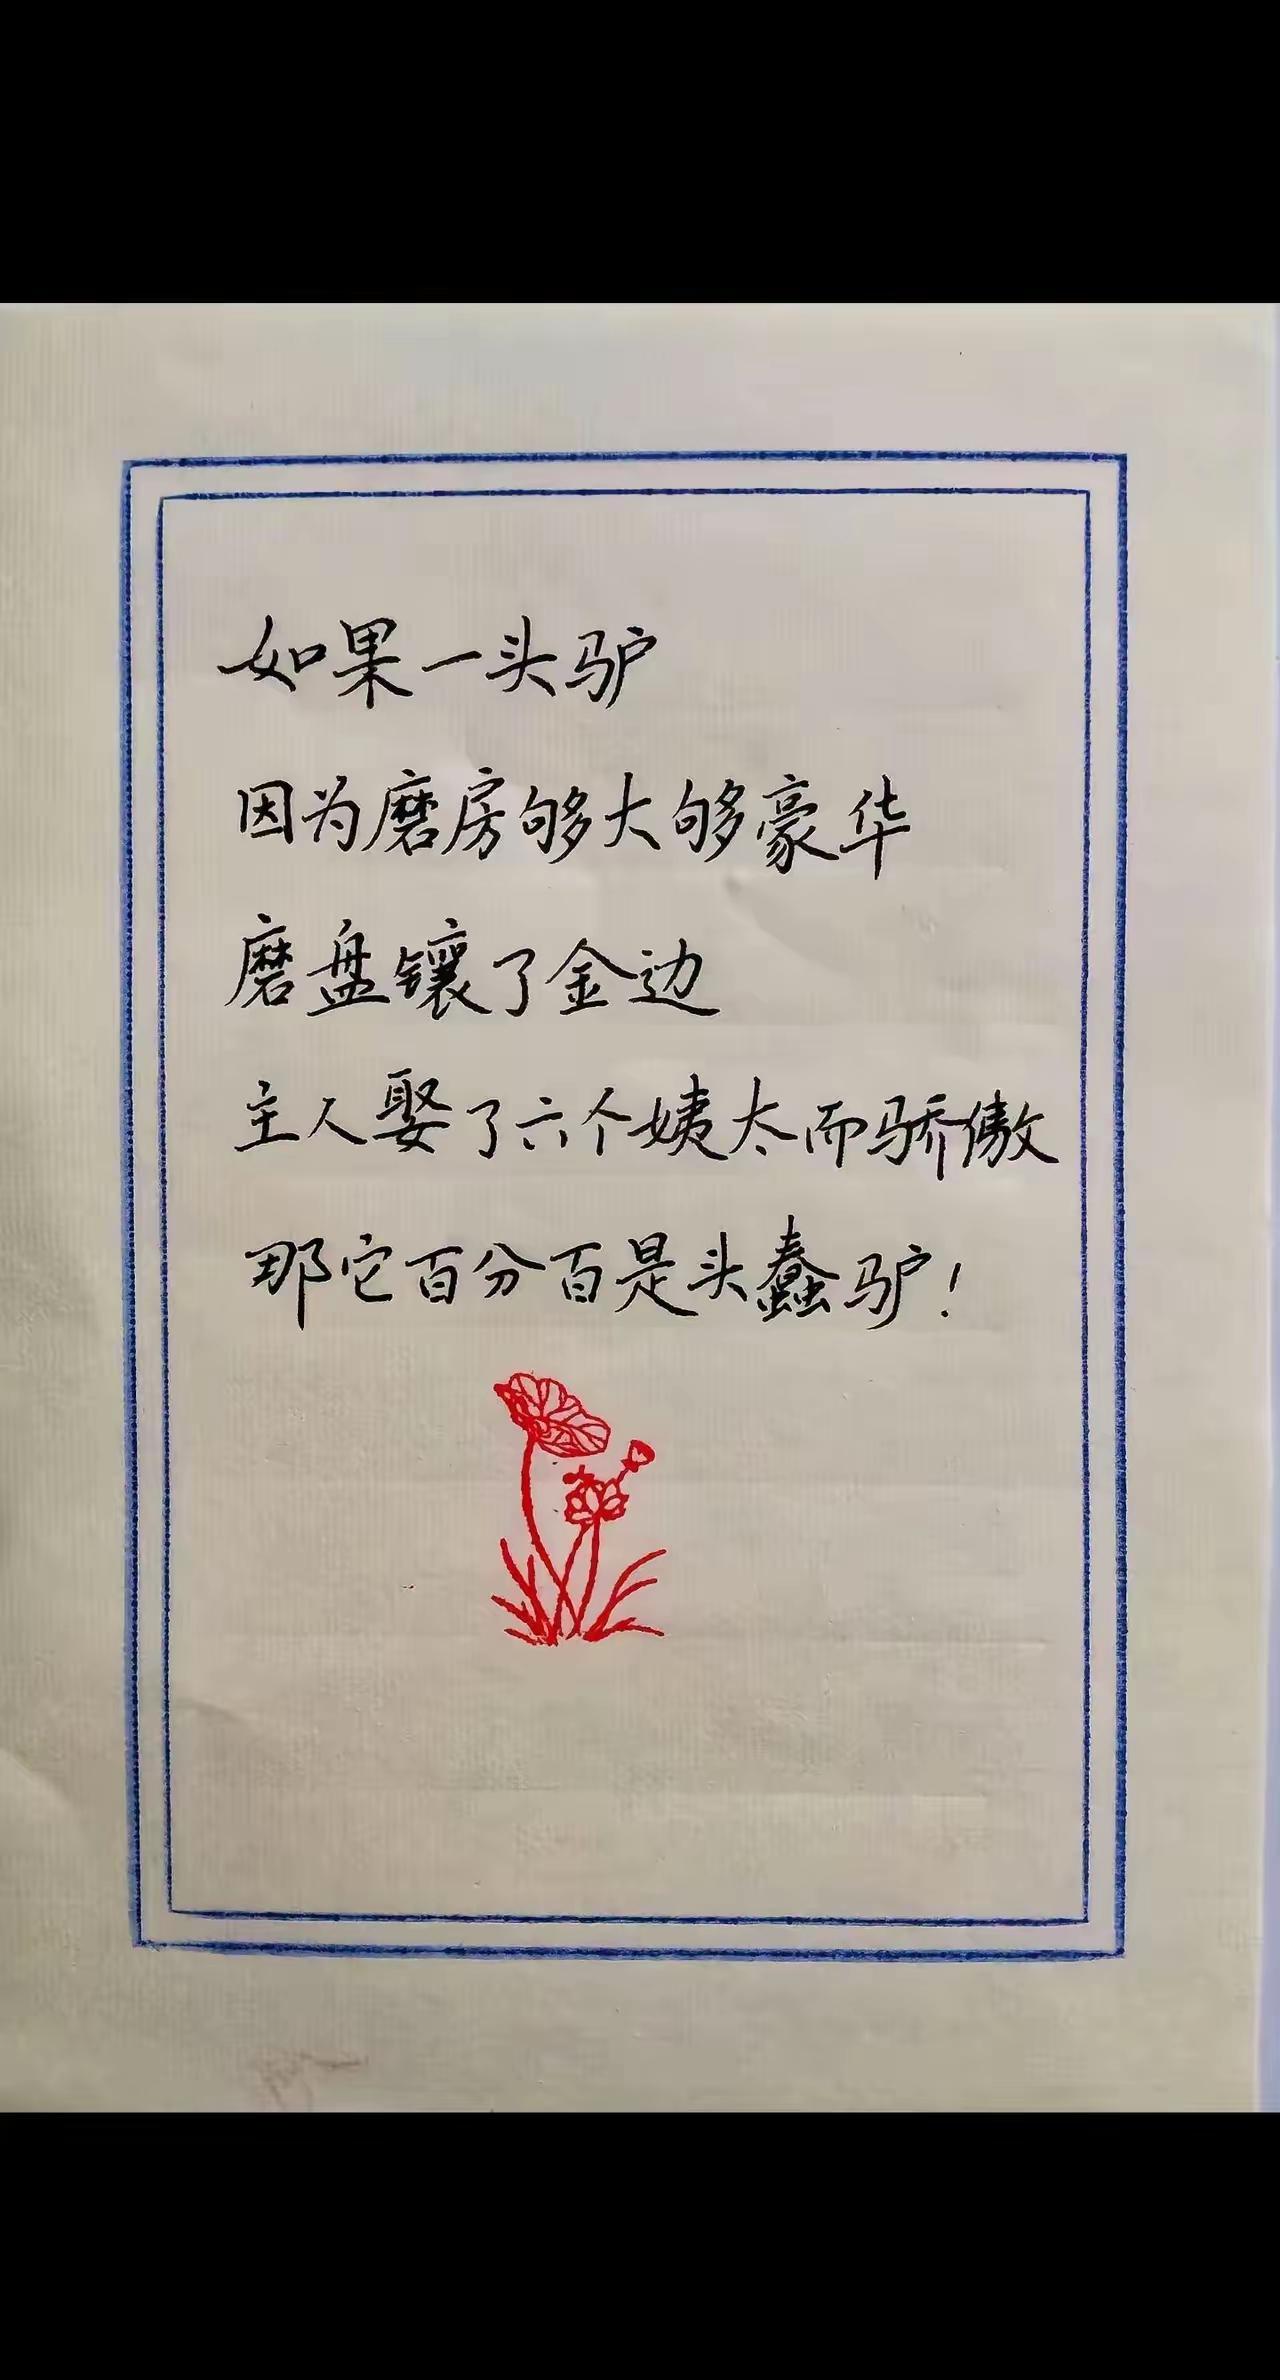 如果一头驴
因为磨房够大够豪华
磨盘镶了金边
主人娶了六个姨太而骄傲
那它百分百是头蠢驴！